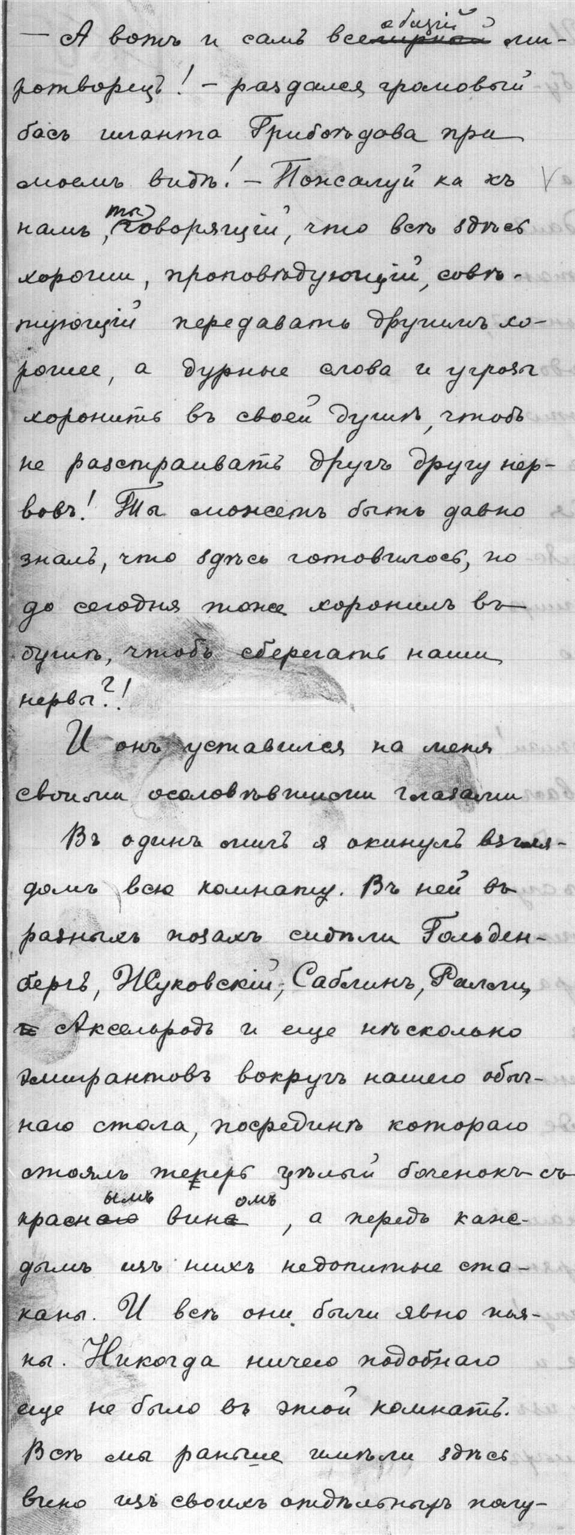 — А вотъ и самъ всеобщій ми-
ротворецъ! — раздался громовый
басъ гиганта Грибоѣдова при
моемъ видѣ! — Пожалуй ка къ
намъ, ты, говорящій, что всѣ здѣсь
хорошіи, проповѣдующій, совѣ-
тующій передавать другимъ хо-
рошее, а дурныя слова и угрозы
хоронить въ своей душѣ, чтобъ
не разстраивать другъ другу нер-
вовъ! Ты можетъ быть давно
зналъ, что здѣсь готовилось, но
до сегодня тоже хоронилъ въ
душѣ, чтобъ сберегать наши
нервы?!
И онъ уставился на меня
своими осоловѣвшими глазами
Въ одинъ мигъ я окинулъ взгля-
домъ всю комнату. Въ ней въ
разныхъ позахъ сидѣли Гольден-
бергъ, Жуковскій, Саблинъ, Ралли,
Аксельродъ и еще нѣсколько
эмигрантовъ вокругъ нашего обыч-
наго стола, посрединѣ котораго
стоялъ теперь цѣлый боченокъ съ
краснымъ виномъ, а передъ каж-
дымъ изъ нихъ недопитые ста-
каны. И всѣ они были явно пья-
ны. Никогда ничего подобнаго
еще не было въ этой комнатѣ.
Всѣ мы раньше имѣли здѣсь
вино изъ своихъ отдѣльныхъ полу-